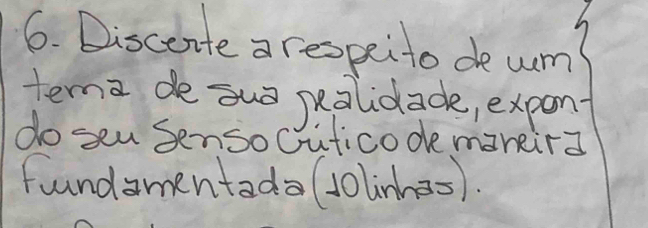 6. Discerte a respeito de um
tema de sua realidade, expon-
do seu senso crítico de maneira
fundamentada (10 linhas).